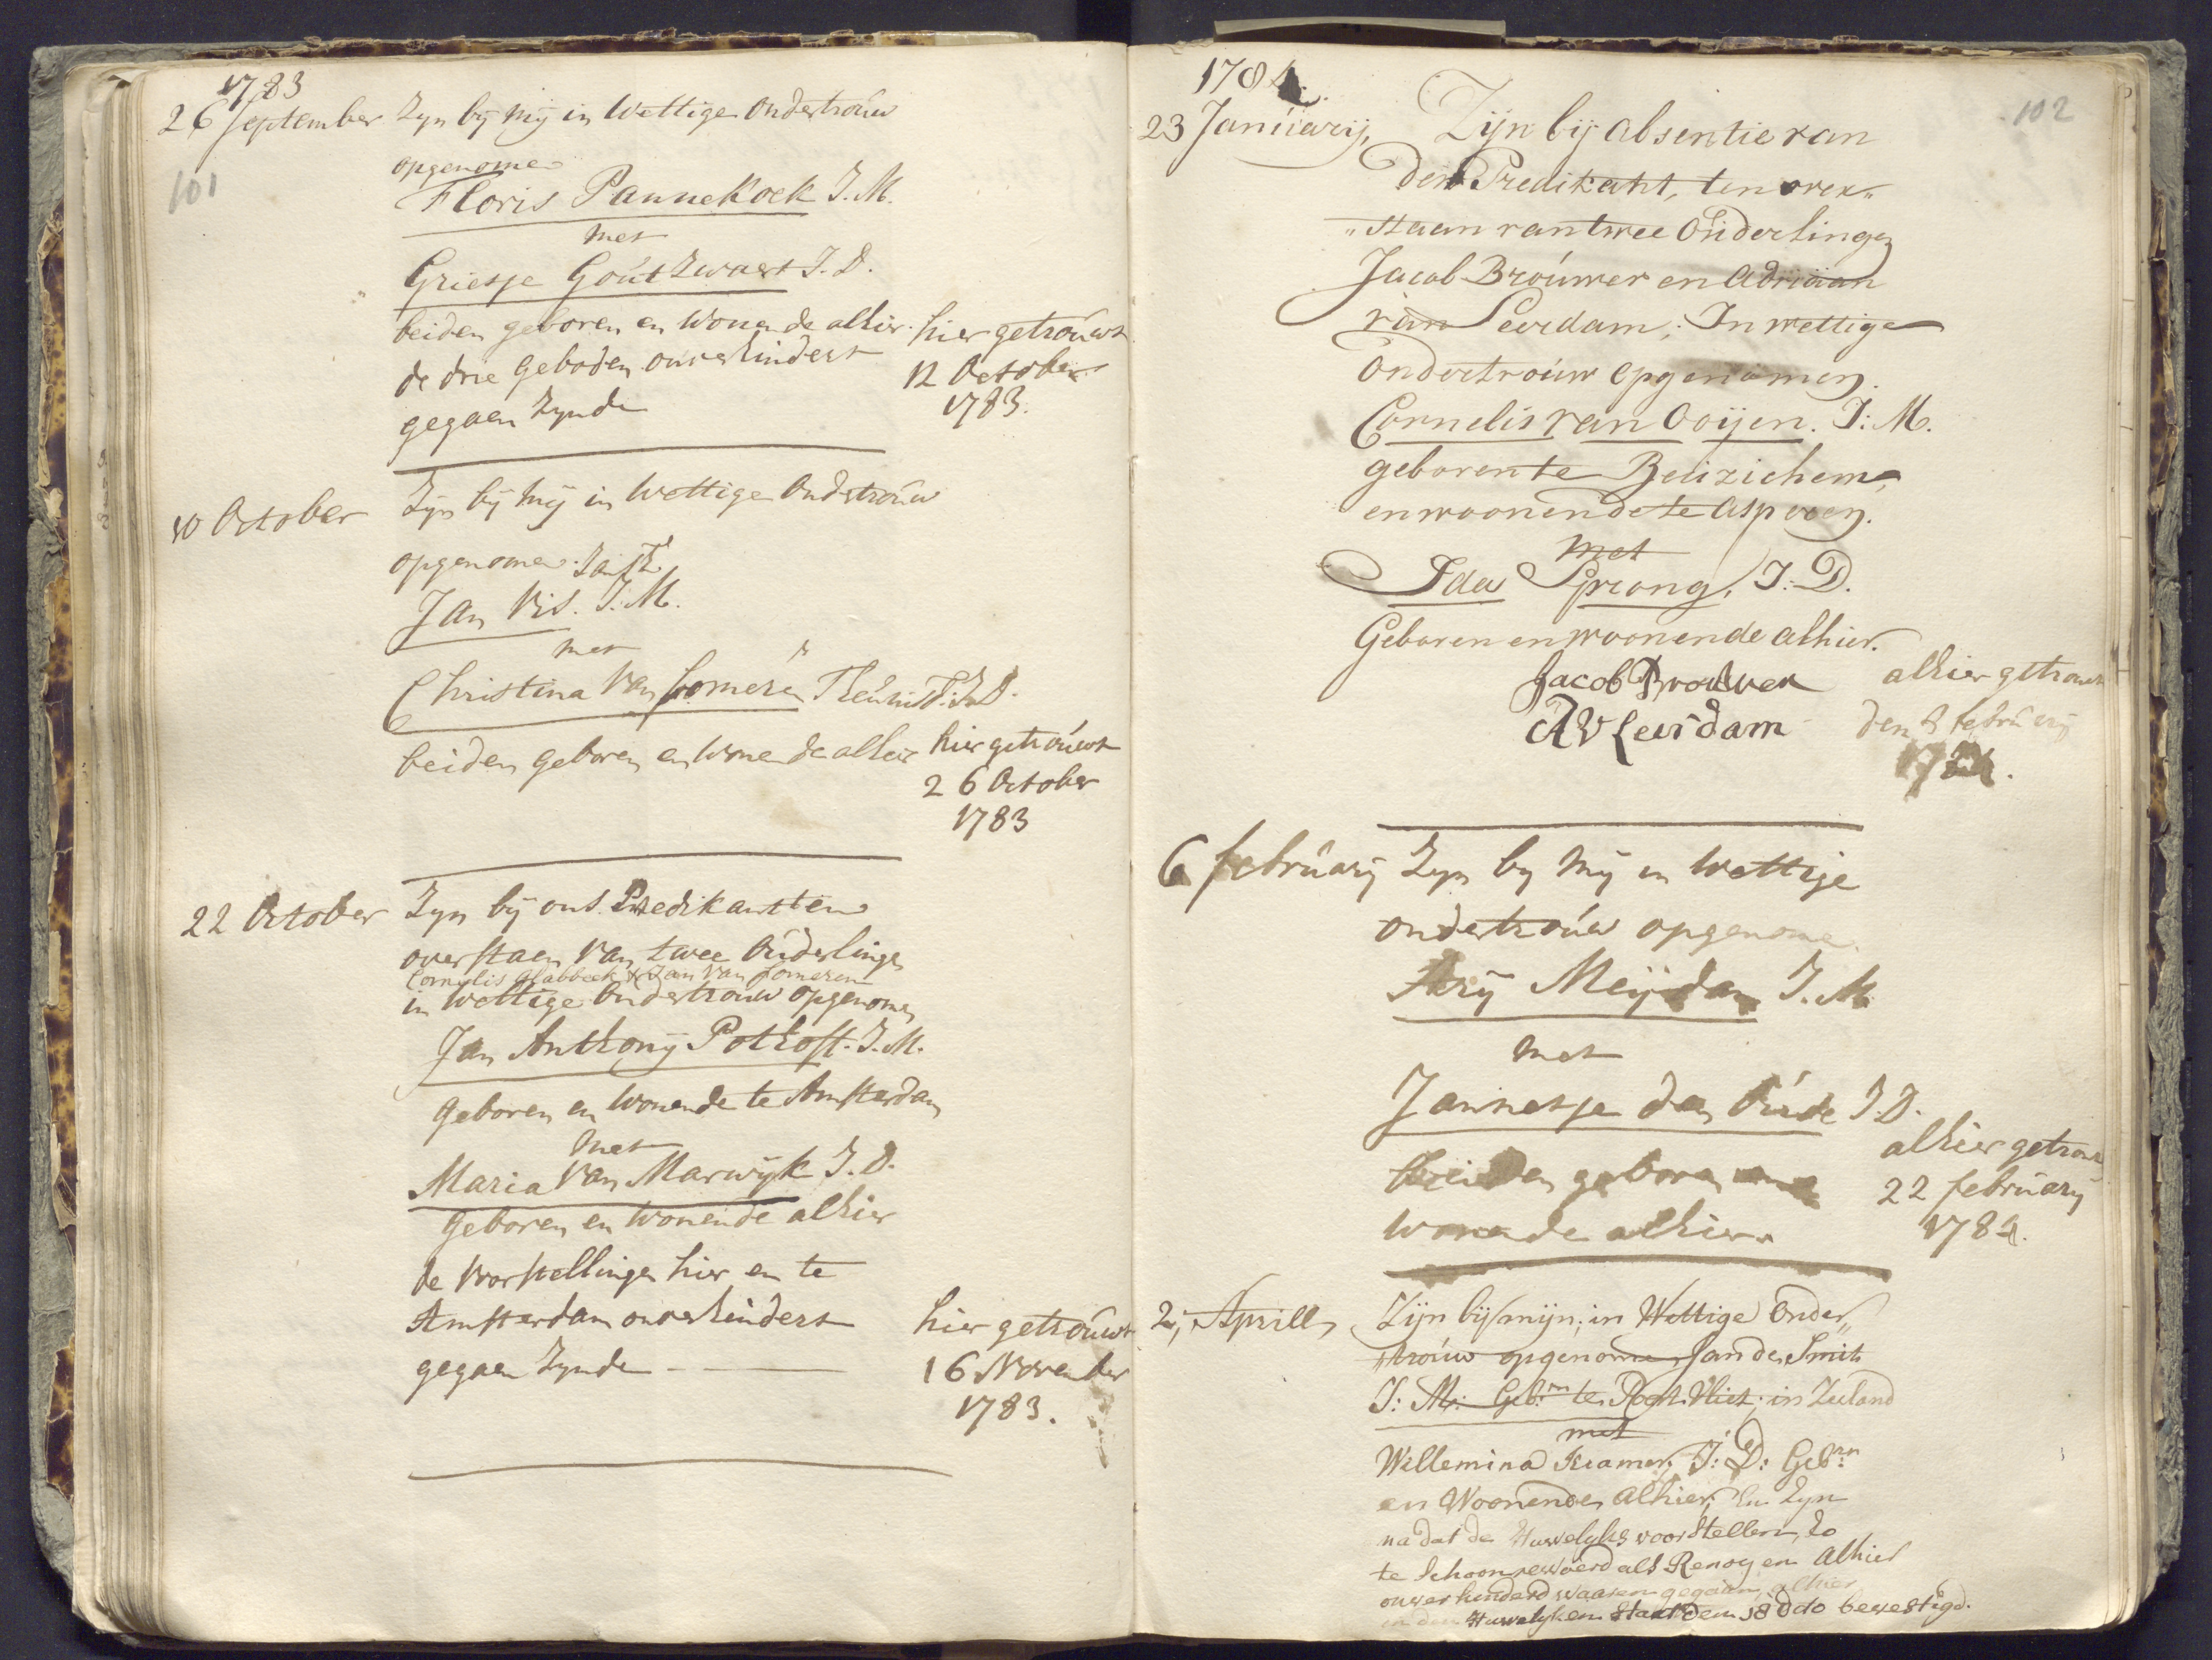 1783
26 September Zyn bij Mij in Wettige Ondertroúw
101
opgenomen
Floris Pannekoek J.M.
met
Griesje Goút Zwaert J.D.
beiden geboren en Wonende alhier. hier getroúwt
de drie Geboden onverhindert 12 October
gegaen Zynde 1783.
10 October Zyn bij Mij in Wettige Ondertroúw
opgenomen
Jan Vis. J.M.
met
Christina Van Someren J.D.
beiden geboren en Wonende alhier hier getroúwt
26 October
1783
22 October Zyn bij ons Predikant ten
overstaen Van twee Oúderlingen
Cornelis Glabbeek & Jan Van Someren
in Wettige Ondertrouw opgenomen
Jan Anthonij Pothoft. J.M.
Geboren en Wonende te Amsterdam
met
Maria Van Marwijk J.D.
Geboren en Wonende alhier
de Voorstellingen hier en te
Amsterdam onverhindert hier getroúwt
gegaen Zynde 16 November
1783.
1784.
102
23 Janúarij, Zijn bij absentie van
den Predikant, ten over„
„staan van twee Oúderlingen
Jacob Broúwer en Adriaan
van Leerdam; In wettige
Ondertroúw Opgenomen.
Cornelis van Ooijen. J:M.
geboren te Beúzichem,
en woonende te Asperen.
met
Ida Sprong, J:D.
Geboren en woonende alhier.
Jacob Brouwer alhier getrouwt
AV Leerdam den 8 febrúarij
1784.
6 febrúarij Zyn by Mij in Wettige
ondertroúw opgenomen
Arij Meijdam J.M.
met
Jannetje den Oúde J.D.
alhier getrouwt
beiden geboren en 22 februarij
wonende alhier. 1784.
2, Aprill, Zijn bij mijn, in Wettige Onder„
„troúw opgenomen Jan de Smit
J: M: Geb:rn te Poort Vliet, in Zeeland
met
Willemina Kramer, J: D: Geb:rn
en Woonende Alhier, En Zyn
na dat de Huwelyks voorstellen, zo
te Schoonrewoerd als Renoy en Alhier
onverhinderd waaren gegaan, alhier
in den Huwelyken Staat den 18 dito bevestigd.